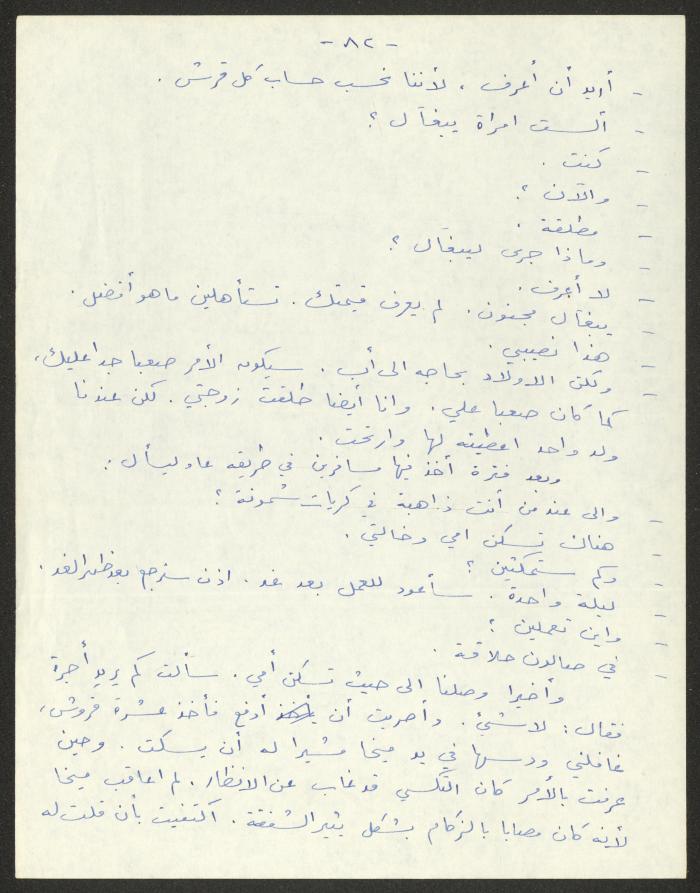 - ٨٢ -
- أريد أن أعرف ، لأننا نحسب حساب كل قرش .
- ألست امرأة يبغآل ؟
- كنت .
- والآن ؟
- مطلقة .
- وماذا جرى ليبغال ؟
- لا أعرف .
- يبغآل مجنون . لم يعرف قيمتك . تستأهلين ما هو أفضل .
- هذا نصيبي .
- ولكن الاولاد بحاجه الى أب . سيكون الأمر صعبا جدا عليك ،
كما كان صعبا علي . وانا أيضا طلقت زوجتي . لكن عندنا
ولد واحد اعطيته لها وارتحت .
وبعد فترة أخذ فيها مسافرين في طريقه عاد ليسأل :
- والى عند من أنت ذاهبة في كريات شمونة ؟
- هناك تسكن امي وخالتي .
- وكم ستمكثين ؟
- ليلة واحدة . سأعود للعمل بعد غد . اذن سنرجع بعد ظهر الغد .
- واين تعملين ؟
- في صالون حلاقة .
وأخيرا وصلنا الى حيث تسكن أمي . سألت كم يريد أجرة
فقال : لا شيء . وأصريت أن أدفع فأخذ عشرة قروش ،
غافلني ودسها في يد ميخا مشيرا له أن يسكت . وحين
عرفت بالأمر كان التكسي قد غاب عن الانظار . لم اعاقب ميخا
لأنه كان مصابا بالزكام بشكل يثير الشفقة . اكتفيت بأن قلت له